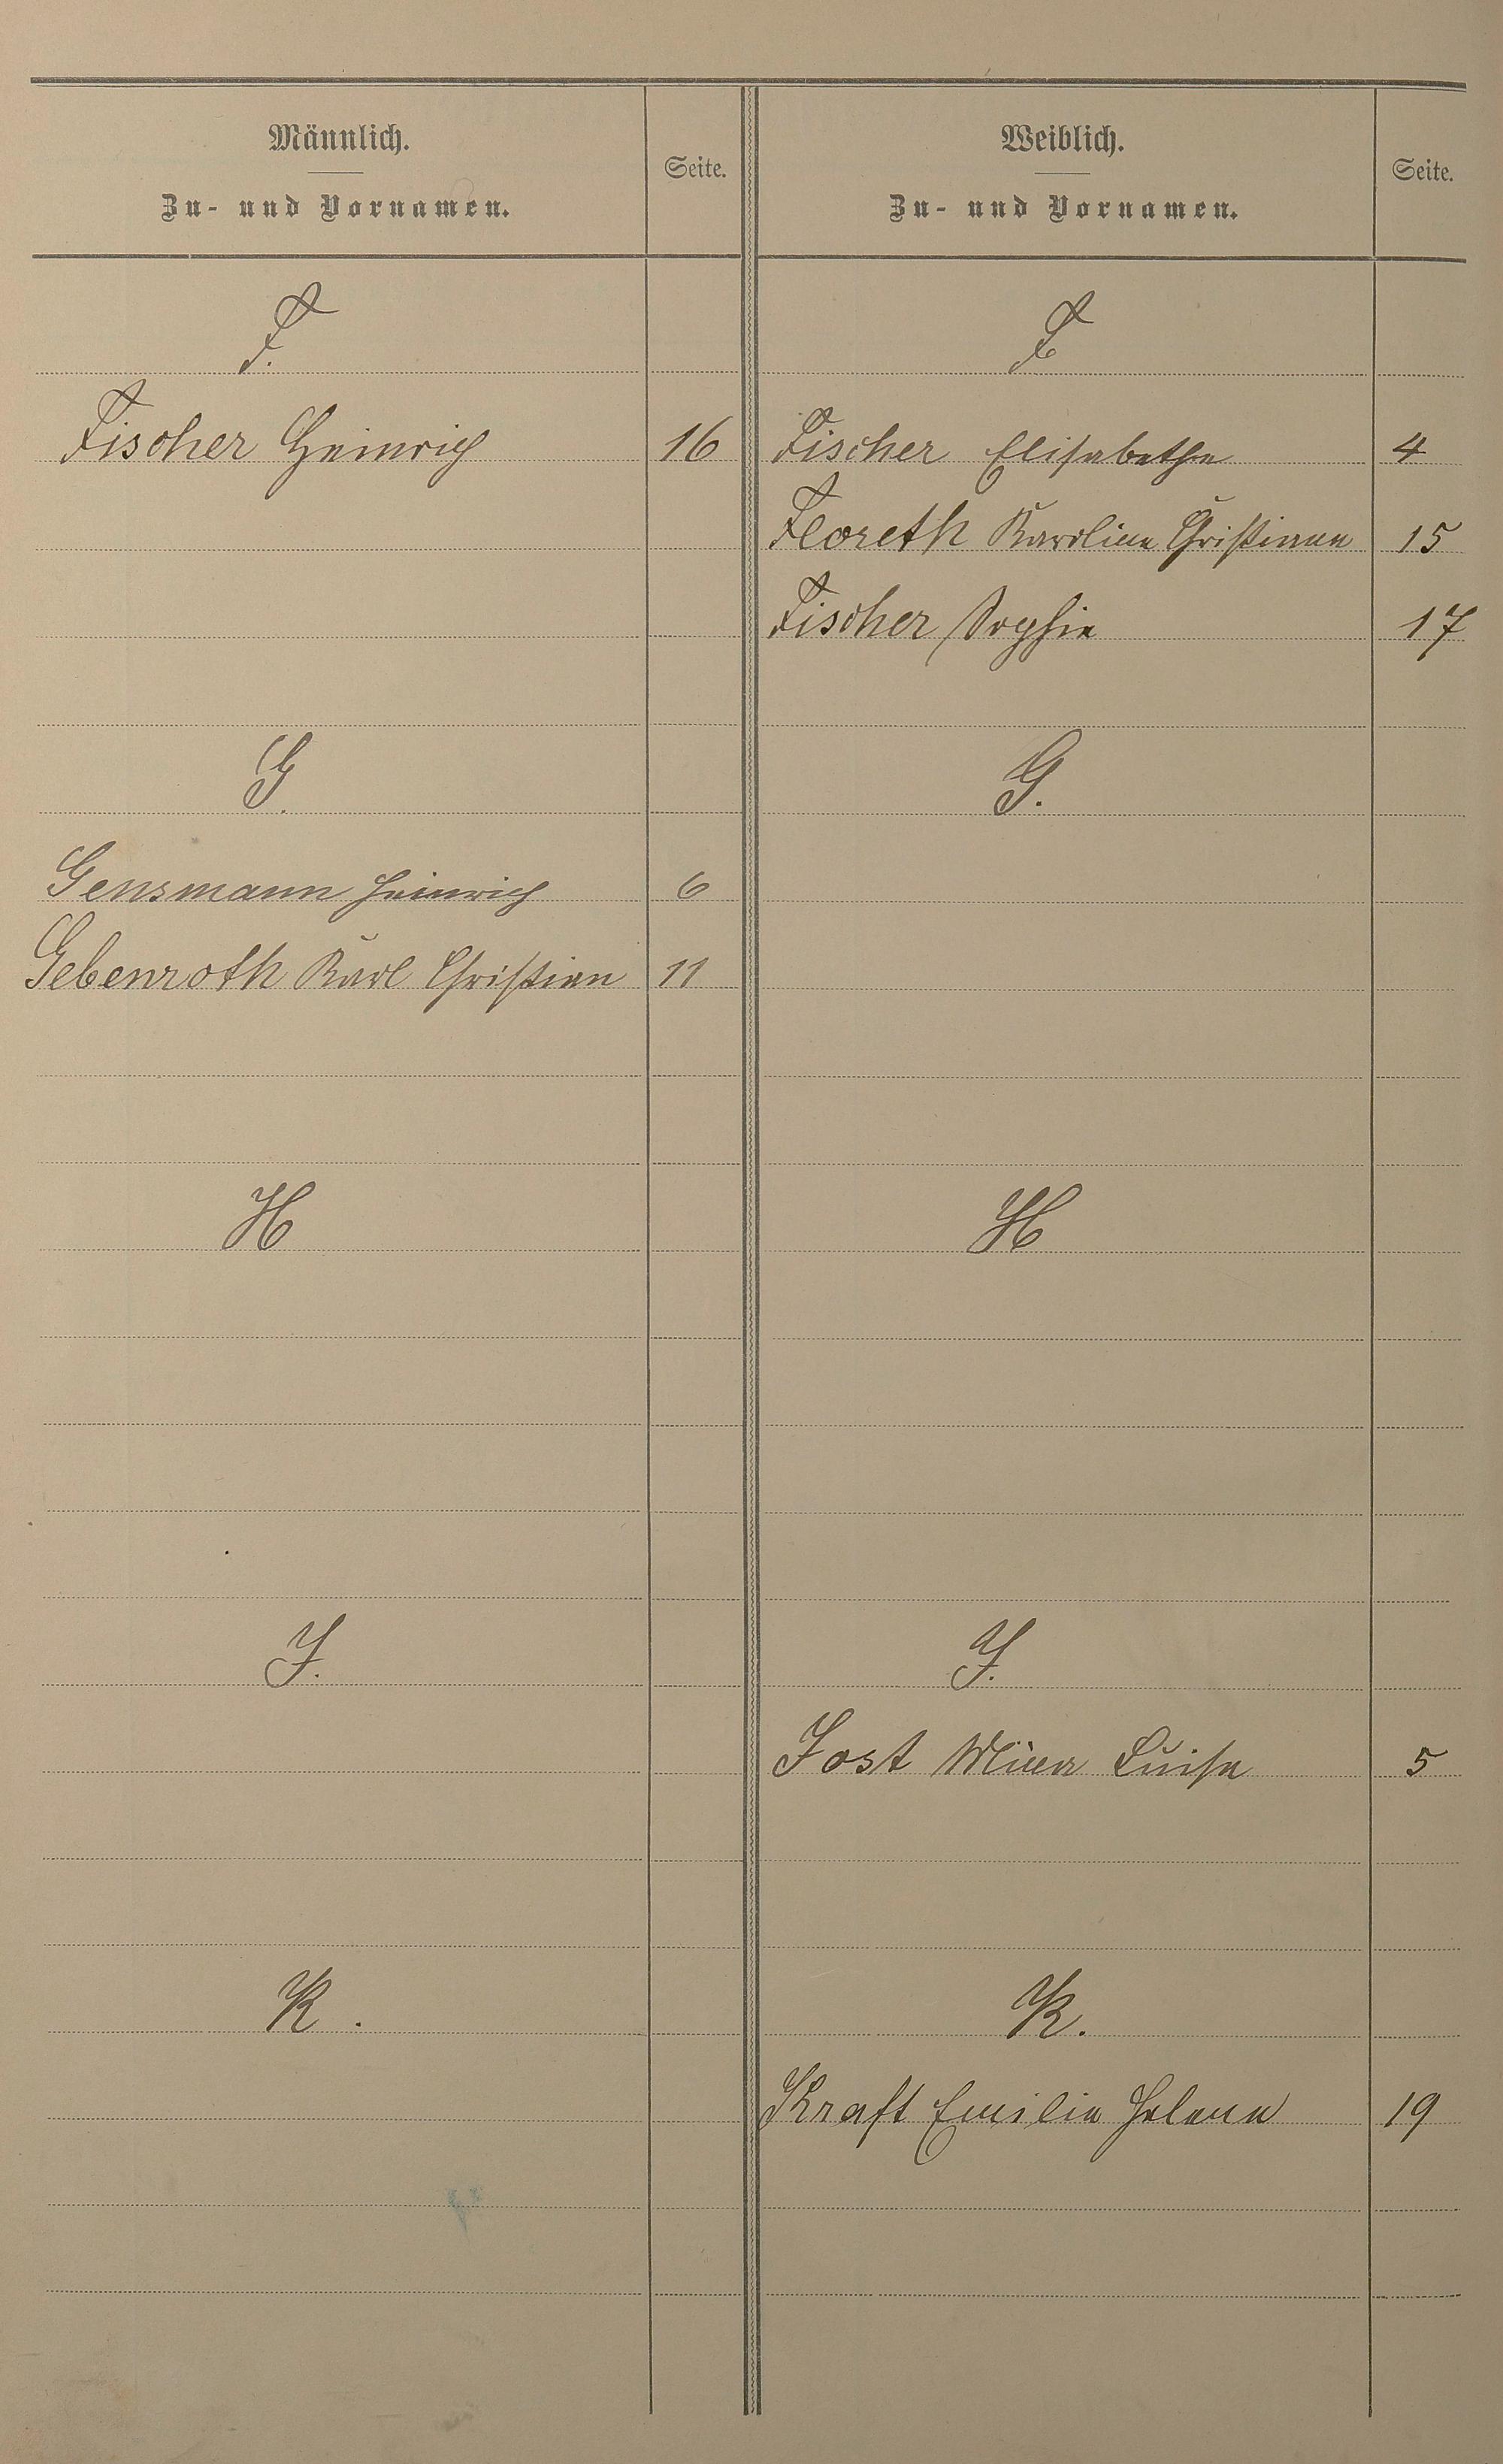 Männlich.
Zu- und Vornamen.
Seite.
Weiblich.
Zu- und Vornamen.
Seite.
F.
F
Fischer Heinrich 16
Fischer Elisabethe 4
Floreth Karoline Christiane 15
Fischer Sophie 17
G.
G.
Gensmann Heinrich 6
Gebenroth Karl Christian 11
H
H
J.
J.
Jost Mina Luise 5
K.
K.
Kraft Emilie Helene 19